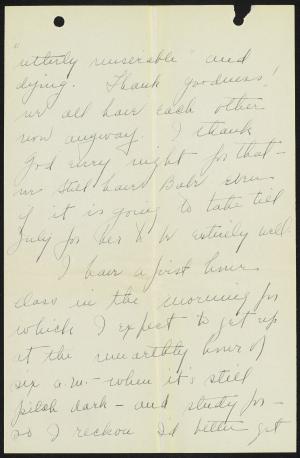 "utterly miserable" and
dying. Thank goodness!
we all have each other
now anyway. I thank
God every night for that—
we still have Babe even
if it is going to take till
July for her to be entirely well.
I have a first hour
class in the morning for
which I expect to get up
at the unearthly hour of
six a.m.— when it's still
pitch dark — and study for —
so I reckon I'd better get